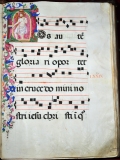 os au tē
gloria ri opor tet
in cruce do mini no
stri iesu chri sti q̄